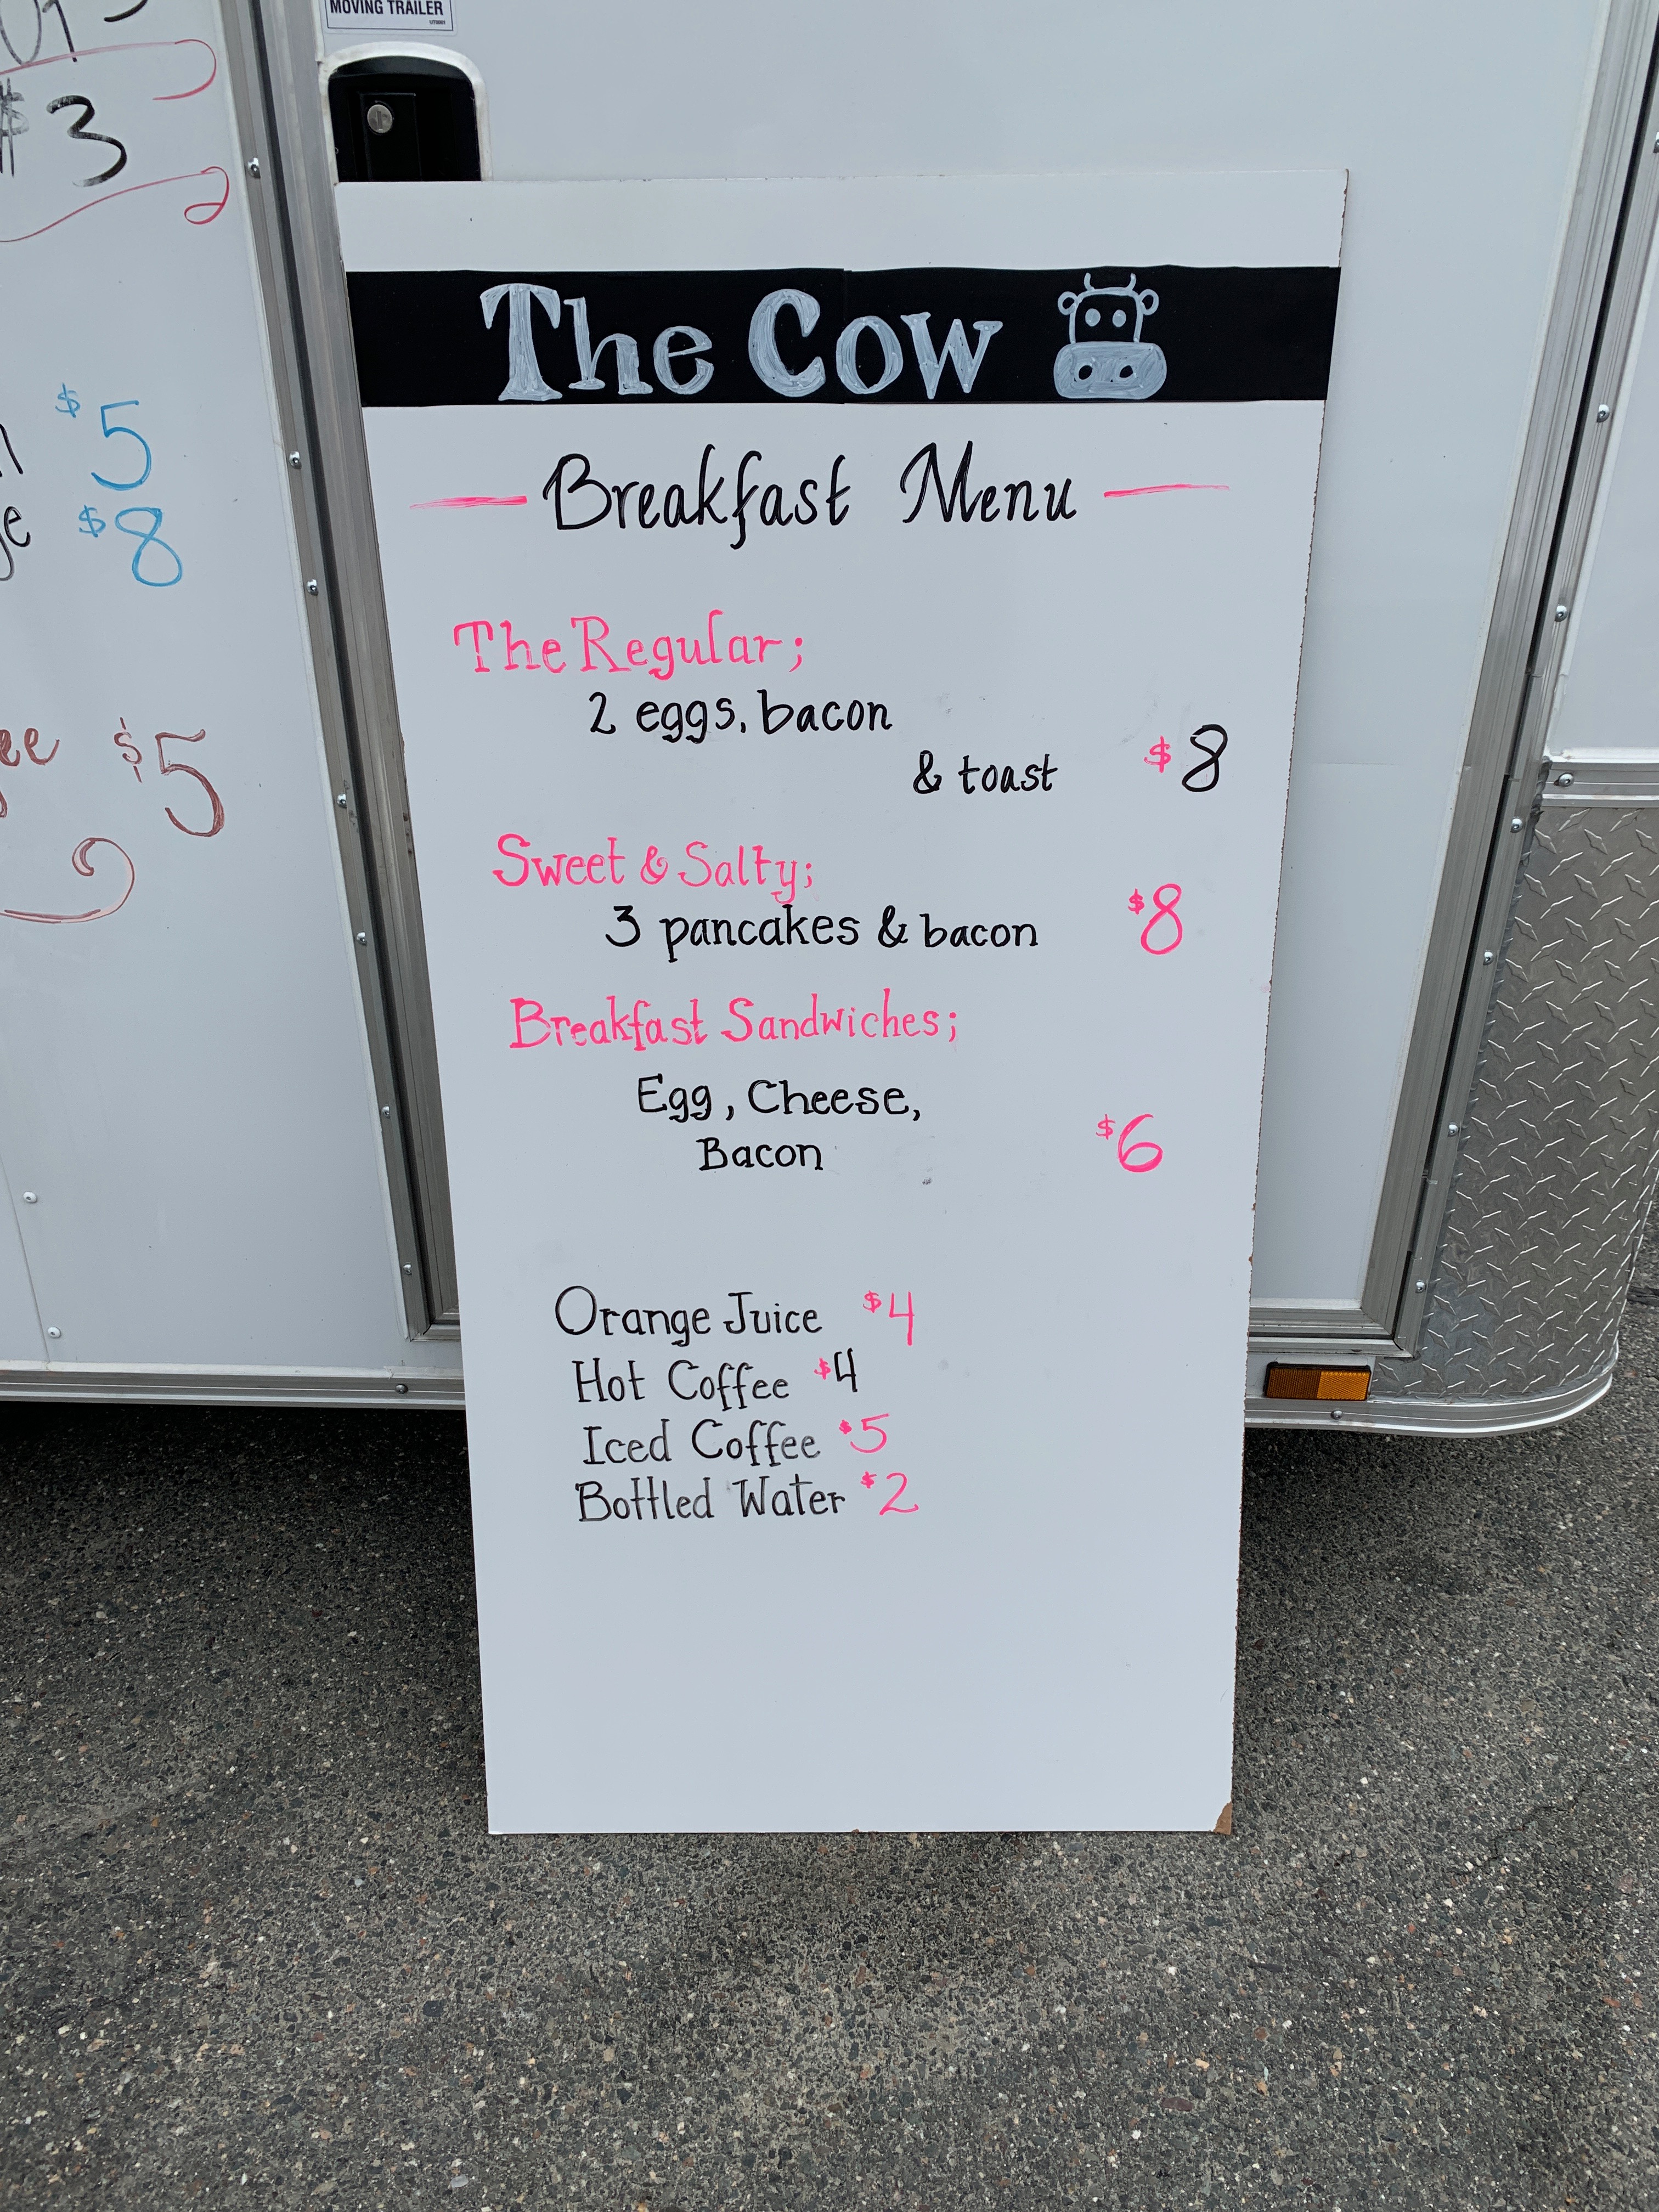 MOVING TRAILER
$3
$5
$8
$5
The Cow
Breakfast Menu
The Regular;
2 eggs, bacon
& toast $8
Sweet & Salty;
3 pancakes & bacon $8
Breakfast Sandwiches;
Egg, Cheese,
Bacon $6
Orange Juice $4
Hot Coffee $4
Iced Coffee $5
Bottled Water $2